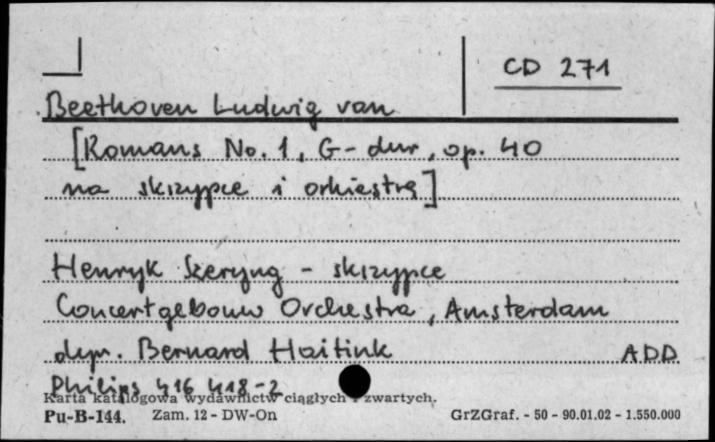 CD 271
Beethoven Ludwig van
[Romans No. 1, G-dur, op. 40
na skrzypce i orkiestrę]
Henryk Szeryng - skrzypce
Concertgebouw Orchestra, Amsterdam
dyr. Bernard Haitink ADD
Philips 416 418-2
Karta katalogowa wydawnictw ciągłych i zwartych.
Pu-B-144. Zam. 12 - DW-On GrZGraf. - 50 - 90.01.02 - 1.550.000